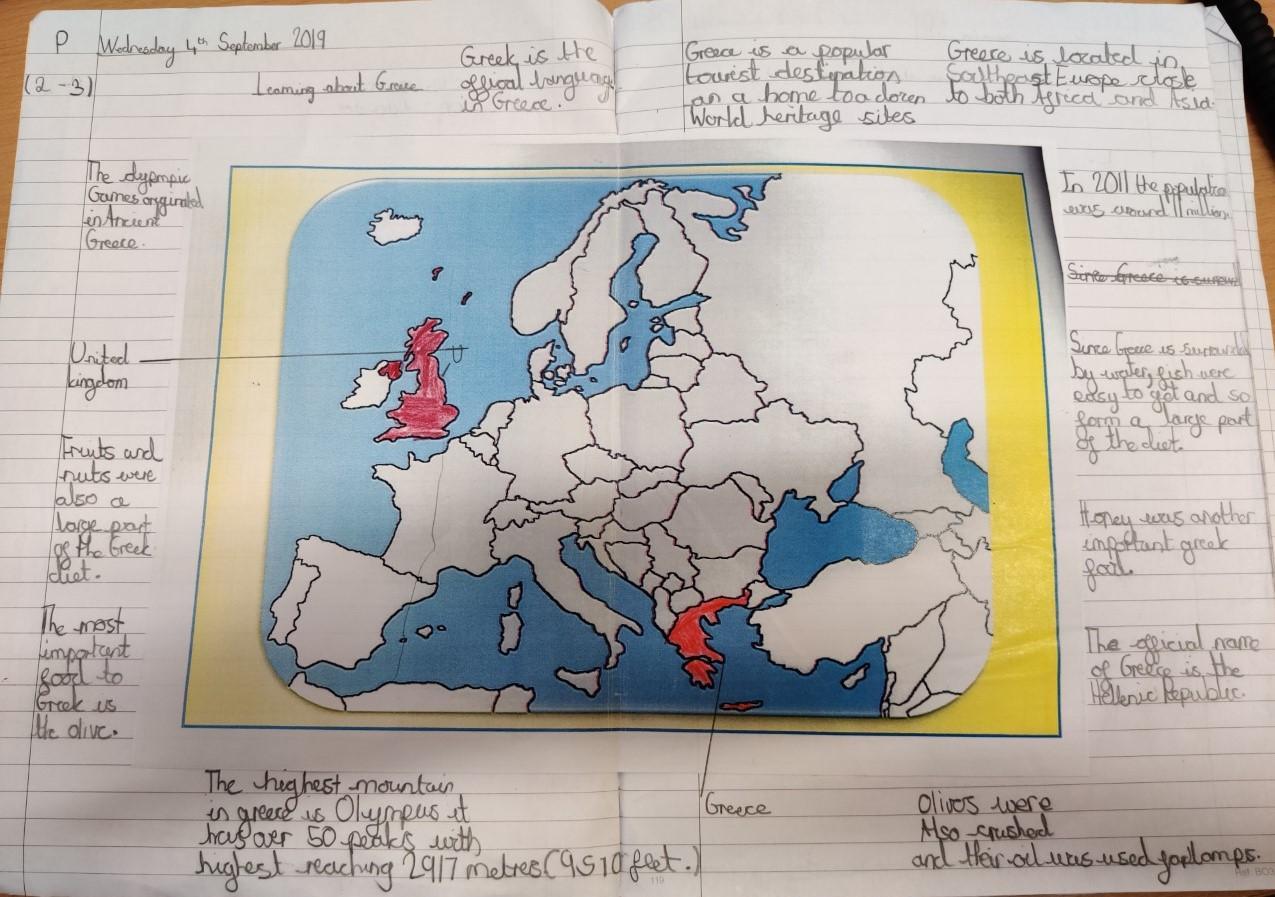 P
Wednesday 4th September 2019
(2-3)
Learning about Greece
Greek is the
offical language
in Greece.
Greece is a popular
tourist destination
an a home to a dozen
World heritage sites
Greece is located in
Southeast Europe close
to both Africa and Asia.
The olypmpic
Games originated
in Ancient
Greece.
United
kingdom
Fruits and
nuts were
also a
large part
of the Greek
diet.
The most
important
food to
Greek is
the olive.
In 2011 the population
was around 11 million.
Since Greece is
Since Greece is
by water, fish were
easy to get and so
form a large part
of the diet.
Honey was another
important greek
food.
The official name
of Greece is the
Hellenic Republic.
The highest mountain
in greece is Olympus it
has over 50 peaks with
highest reaching 2917 metres (9510 feet.)
Greece
Olives were
Also crushed
and their oil was used for lamps.
119